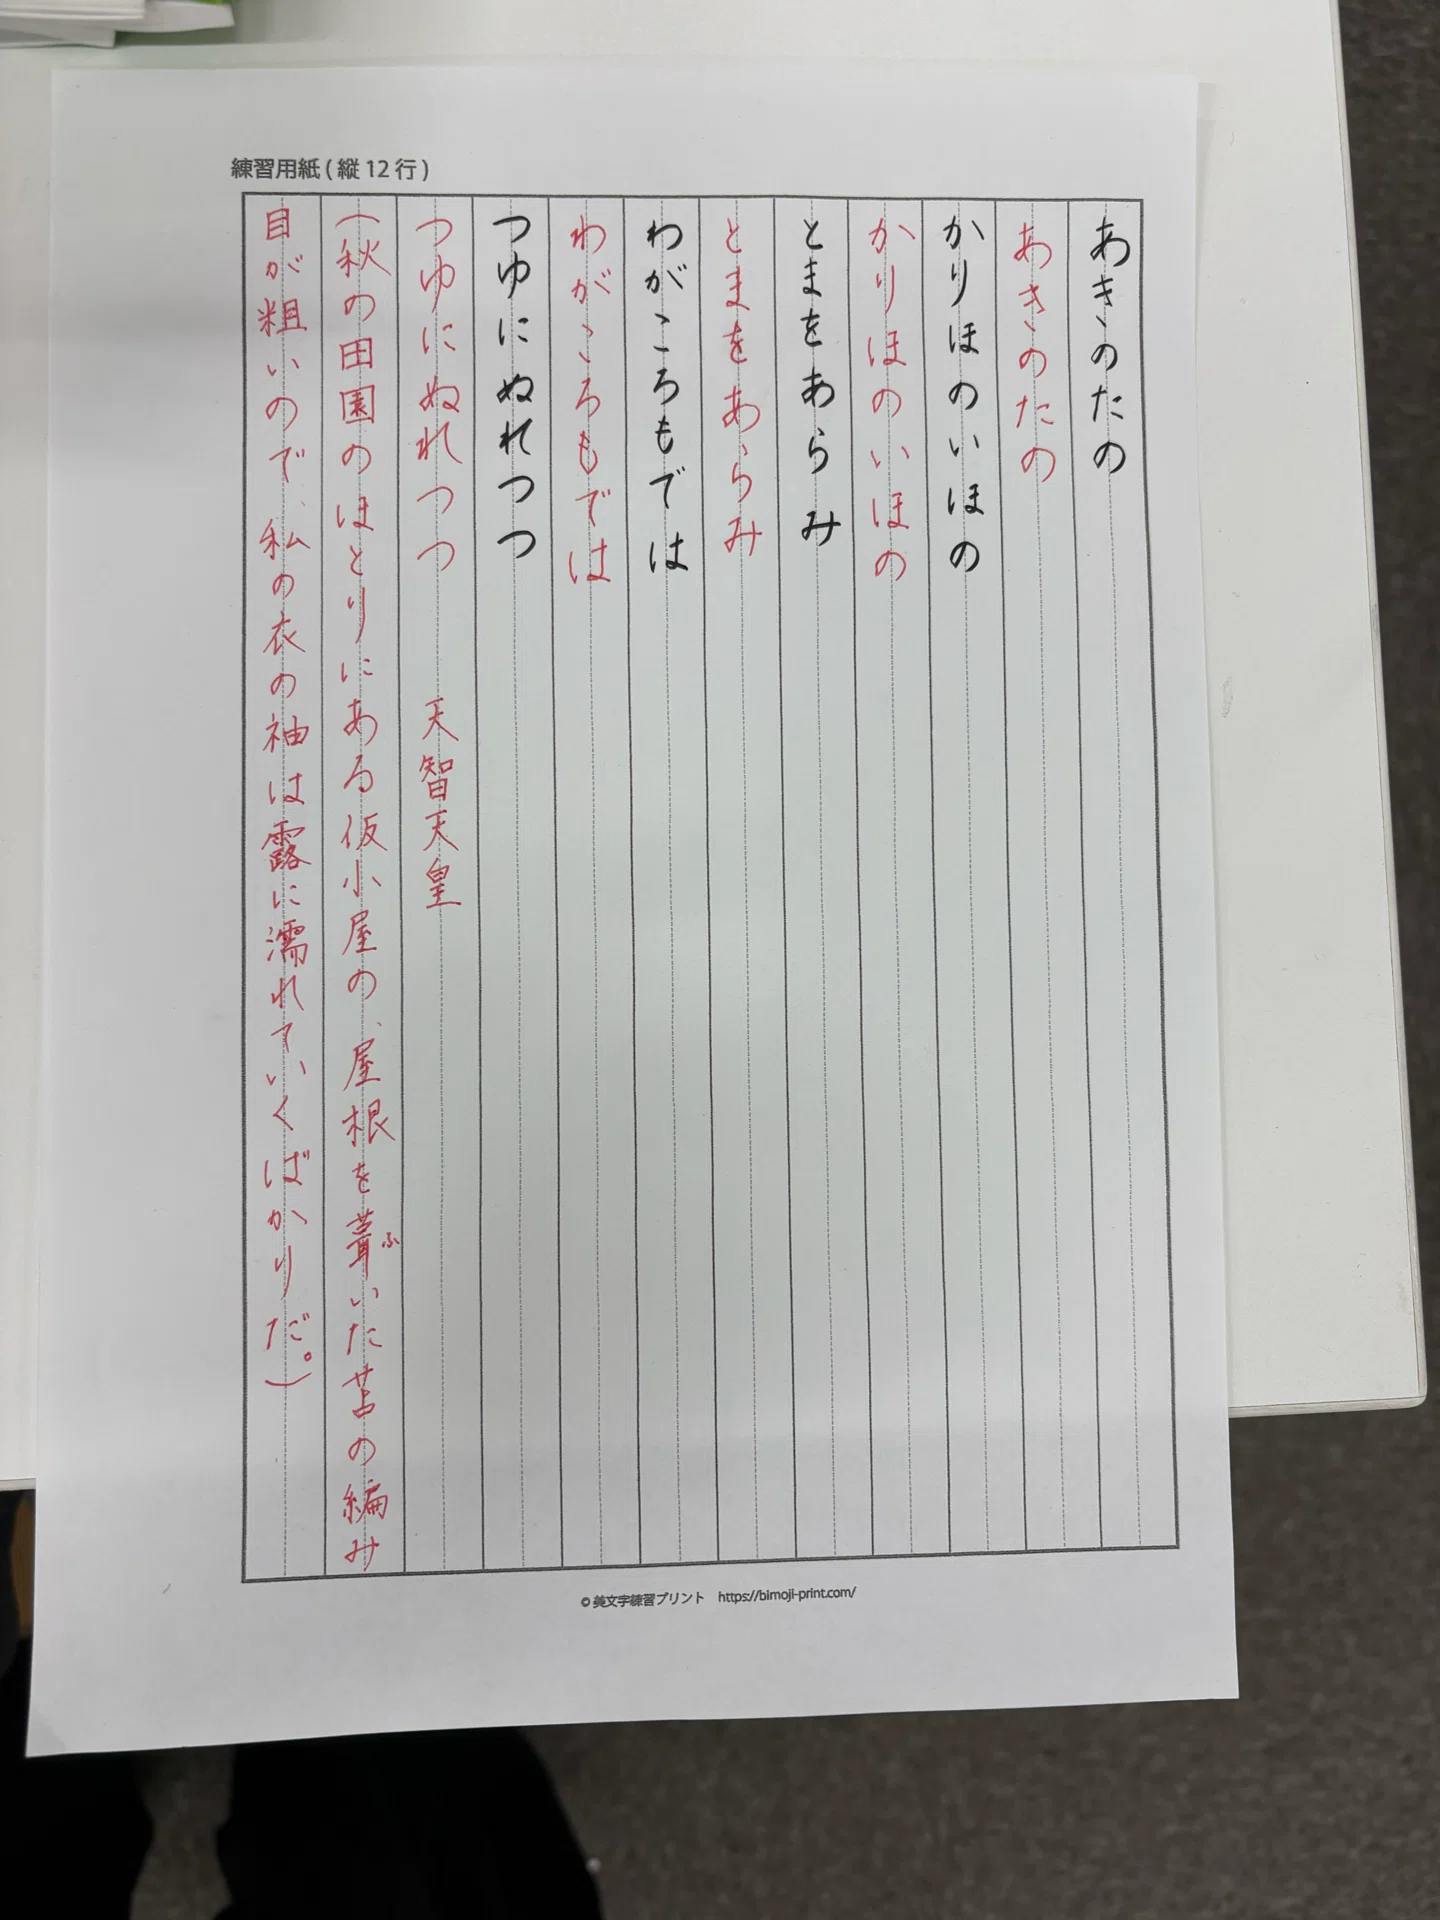 練習用紙(縦12行)
あきのたの
あきのたの
かりほのいほの
かりほのいほの
とまをあらみ
とまをあらみ
わがころもでは
わがころもでは
つゆにぬれつつ
つゆにぬれつつ 天智天皇
(秋の田園のほとりにある仮小屋の、屋根を葺いた苫の編み
ふ
目が粗いので、私の衣の袖は露に濡れていくばかりだ。)
©美文字練習プリント https://bimoji-print.com/